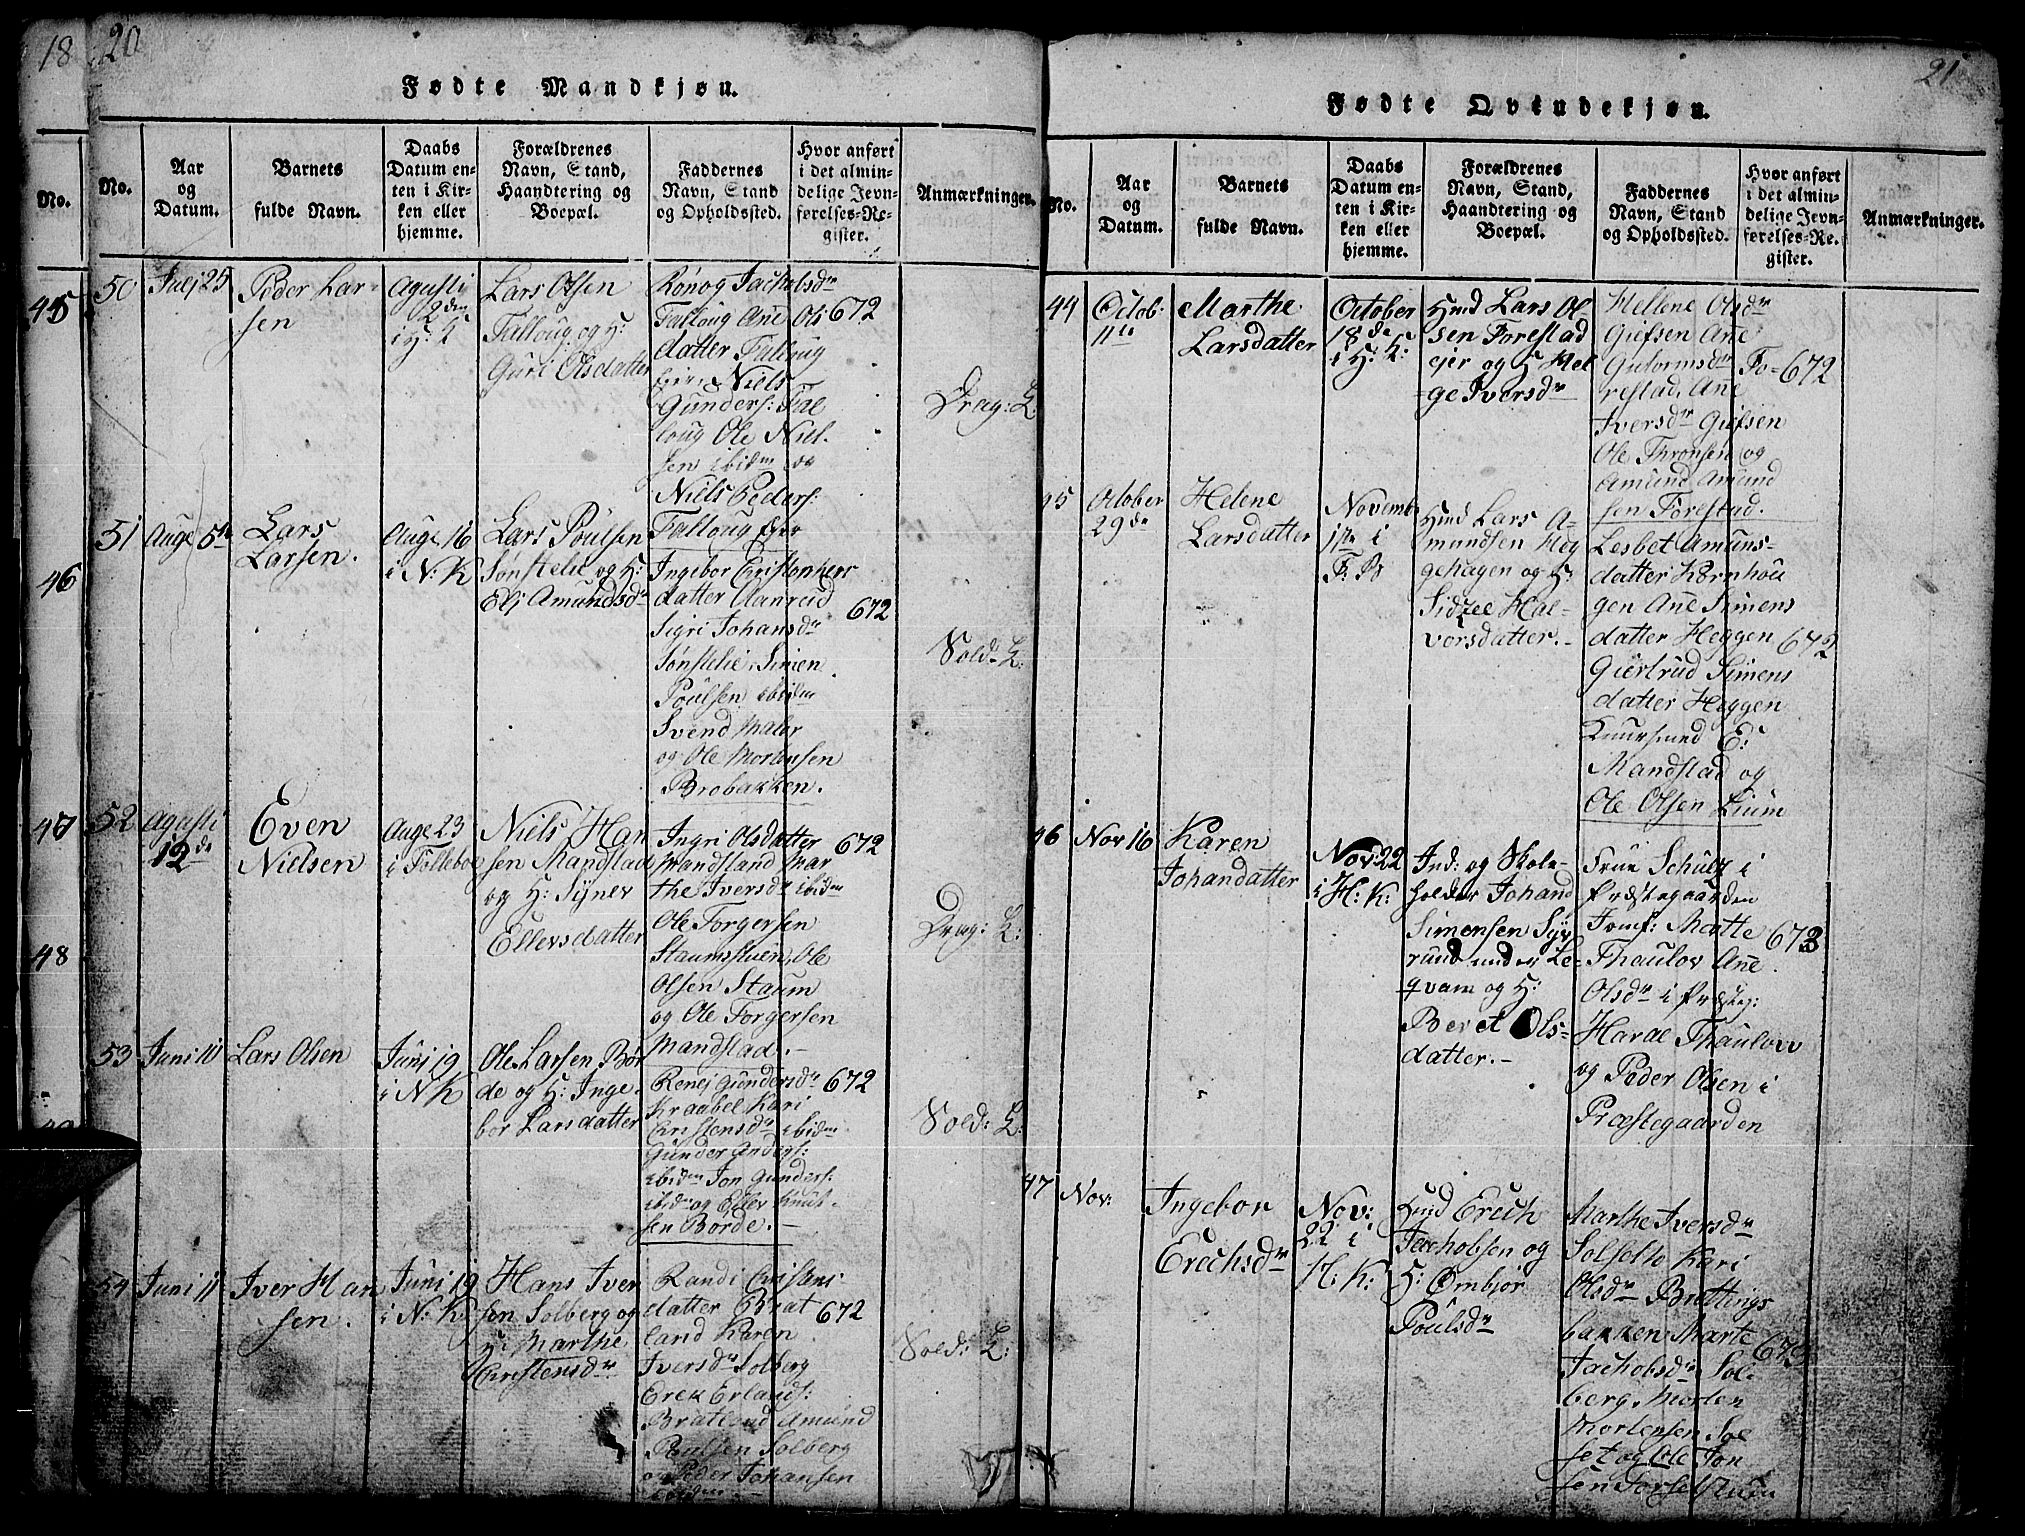 18
20
Fødte Mandkjøn.
No.
No.
Aar
og
Datum.
Barnets
fulde Navn.
Daabs
Datum en-
ten i Kir-
ken eller
hjemme.
Forældrenes
Navn, Stand,
Haandtering og
Boepæl.
Faddernes
Navn, Stand
og Opholdssted.
Hvor anført
i det almin-
delige Jevn-
førelses-Re-
gister.
Anmærkninger.
45
46
47
48
50
Julj 25
Peder Lar-
sen
Agusti
2den
i H: K
Lars Olsen
Falloug og H:
Guri Olsdatter
Rønog Jachobsdr
Falloug Ane Ols
datter Falloug
Niels
Gunders: Fal
loug Ole Niel-
sen ibidm og
Niels Peders:
Falloug
672
Drag: L:
51
Auge 5te
Lars
Larsen.
Auge 16
i N: K
Lars Poulsen
Sønstelie og H:
Elj Amundsdr
Ingebor Cristophers
datter Aanrud
Sigri Johansdr
Sønstelie, Simen
Poulsen ibidm
Svend Maler
og Ole Mortensen
Brobakken.
672
Sold: L:
52
Agusti
12de
Even
Nielsen
Auge 23
i Folleboe
Niels Han
sen Mandstad
og H: Syner
Ellevsdatter
Ingri Olsdatter
Mandstand Mar
the Iversdr ibidm
Ole Torgersen
Staumstuen, Ole
Olsen Staum
og Ole Torgersen
Mandstad.-
672
Drag: L:
53
Juni 11
Lars Olsen
Juni 19
i N K
Ole Larsen Bör
de og H: Inge-
bor Larsdatter
Renej Gundersdr
Kraabel Kari
Cristensdr ibidm
Gunder Anders:
ibidm Jon Gunders:
ibidm og Ellev Knut-
sen Börde.-
672
Sold: L:
54
Juni 11
Iver Han
sen.
Juni 19
i N: K:
Hans Iver
sen Solberg og
H: Marthe
Christensdr
Randi Cristens
datter Brat
land Karen
Iversdr Solberg
Erek Erlands:
Bratland Amund
Poulsen Solberg
og Peder Johansen
ibidm
672
Sold: L:
21
Fødte Qvindekjøn.
No.
Aar
og
Datum.
Barnets
fulde Navn.
Daabs
Datum en-
ten i Kir-
ken eller
hjemme.
Forældrenes
Navn, Stand,
Haandtering og
Boepæl.
Faddernes
Navn, Stand
og Opholdssted.
Hvor anført
i det almin-
delige Jevn-
førelses-Re-
gister.
Anmærkninger.
44
Octob:
11te
Marthe
Larsdatter
October
18de
i H: K:
Hmd Lars Ol-
sen Forestad
ejer og H Hel
ge Iversdr
Hellene Olsdr
Giefsen Ane
Gutormsdr Fo-
restad, Ane
Iversdr Giefsen
Ole Thronsen og
Amund Amund
sen Forestad.
672
45
October
29de
Helene
Larsdatter
Novemb
1ste i
F: B
Hmd Lars A-
mundsen Heg
gehagen og H:
Sidzel Hal-
vorsdatter.-
Lesbet Amuns-
datter Kornhou
gen Ane Simens
datter Heggen
Giertrud Simens
datter Heggen
Guursmed E:
Mandstad og
Ole Olsen Lium
672
46
Nov 16
Karen
Johandatter
Nov: 22
i H: K:
Ind: og Skole-
holder Johand
Simensen Syv
rund under Le-
qvam og H:
Beret Ols-
datter.-
Frue Schultz i
Præstegaarden
Jomf: Matte
Thaulov Ane
Olsdr i Præsteg:
Haral Thaulow
og Peder Olsen i
Præstegaarden
673
47
Nov:
Ingebor
Erechsdr
Nov:
22 i
H: K:
Erech
Jachobsen og
H: Ømbjör
Poulsdr
Marthe Iversdr
Kari
Olsdr Brettings
bakken Marte
Jachobsdr Sol-
berg, Morten
Mortensen Sol
set og Ole Jon
sen
673